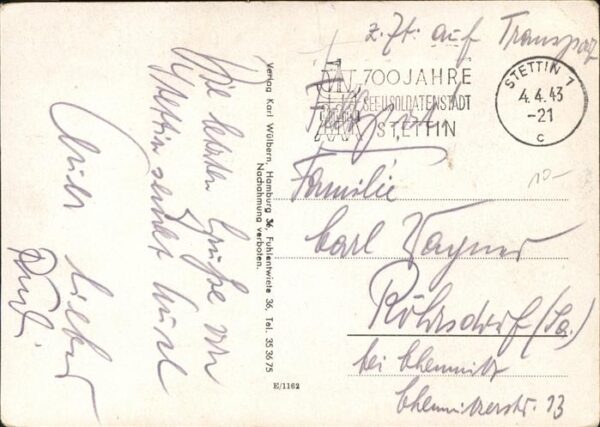 z. Zt. auf Transport
Feldpost
700 JAHRE
SEE-U.SOLDATENSTADT
STETTIN
STETTIN 1
4.4.43
-21
c
10-
Familie
Carl Wagner
Röhrsdorf (Sa.)
bei Chemnitz
Chemnitzerstr. 13
Verlag Karl Wülbern, Hamburg 36, Fuhlentwiete 36, Tel. 35 36 75
Nachahmung verboten.
E/1162
Die letzten Grüße von
Stettin sendet Euch
Euer lieber
Rudi.